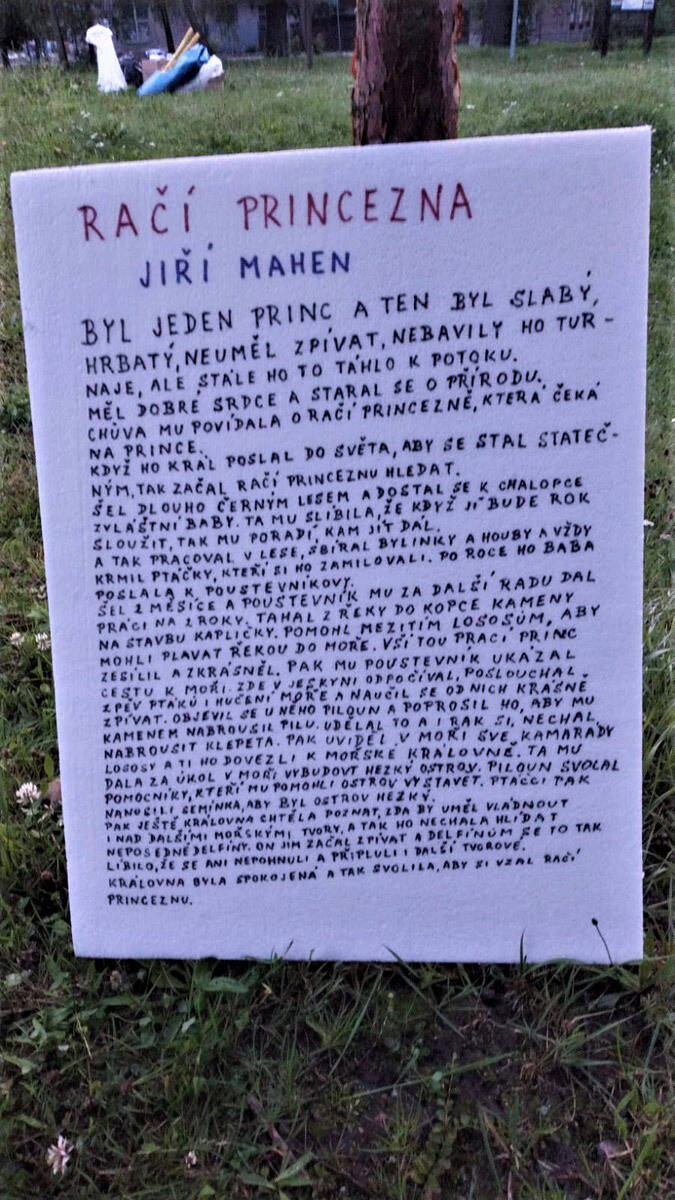 RAČÍ PRINCEZNA
JIŘÍ MAHEN
BYL JEDEN PRINC A TEN BYL SLABÝ,
HRBATÝ, NEUMĚL ZPÍVAT, NEBAVILY HO TUR-
NAJE, ALE STÁLE HO TO TÁHLO K POTOKU.
MĚL DOBRÉ SRDCE A STARAL SE O PŘÍRODU.
CHŮVA MU POVÍDALA O RAČÍ PRINCEZNĚ, KTERÁ ČEKÁ
NA PRINCE.
KDYŽ HO KRÁL POSLAL DO SVĚTA, ABY SE STAL STATEČ-
NÝM, TAK ZAČAL RAČÍ PRINCEZNU HLEDAT.
ŠEL DLOUHO ČERNÝM LESEM A DOSTAL SE K CHALOPCE
ZVLÁŠTNÍ BABY. TA MU SLÍBILA, ŽE KDYŽ JÍ BUDE ROK
SLOUŽIT, TAK MU PORADÍ, KAM JÍT DÁL.
A TAK PRACOVAL V LESE, SBÍRAL BYLINKY A HOUBY A VŽDY
KRMIL PTÁČKY, KTEŘÍ SI HO ZAMILOVALI. PO ROCE HO BABA
POSLALA K POUSTEVNÍKOVY.
ŠEL 2 MĚSÍCE A POUSTEVNÍK MU ZA DALŠÍ RADU DAL
PRÁCI NA 2 ROKY. TAHAL Z ŘEKY DO KOPCE KAMENY
NA STAVBU KAPLIČKY. POMOHL MEZITÍM LOSOSŮM, ABY
MOHLI PLAVAT ŘEKOU DO MOŘE. VŠÍ TOU PRACÍ PRINC
ZESÍLIL A ZKRÁSNĚL. PAK MU POUSTEVNÍK UKÁZAL
CESTU K MOŘI. ZDE V JESKYNI ODPOČÍVAL, POSLOUCHAL
ZPĚV PTÁKŮ I HUČENÍ MOŘE A NAUČIL SE OD NICH KRÁSNĚ
ZPÍVAT. OBJEVIL SE U NĚHO PILOUN A POPROSIL HO, ABY MU
KAMENEM NABROUSIL PILU. UDĚLAL TO A I RAK SI NECHAL
NABROUSIT KLEPETA. PAK UVIDĚL V MOŘI SVÉ KAMARÁDY
LOSOSY A TI HO DOVEZLI K MOŘSKÉ KRÁLOVNĚ. TA MU
DALA ZA ÚKOL V MOŘI VYBUDOVT HEZKÝ OSTROV. PILOUN SVOLAL
POMOCNÍKY, KTEŘÍ MU POMOHLI OSTROV VYSTAVĚT. PTÁČCI PAK
NANOSILI SEMÍNKA, ABY BYL OSTROV HEZKÝ.
PAK JEŠTĚ KRÁLOVNA CHTĚLA POZNAT, ZDA BY UMĚL VLÁDNOUT
I NAD DALŠÍMI MOŘSKÝMI TVORY, A TAK HO NECHALA HLÍDAT
NEPOSEDNÉ DELFÍNY. ON JIM ZAČAL ZPÍVAT A DELFÍNŮM SE TO TAK
LÍBILO, ŽE SE ANI NEPOHNULI A PŘIPLULI I DALŠÍ TVOROVÉ.
KRÁLOVNA BYLA SPOKOJENÁ A TAK SVOLILA, ABY SI VZAL RAČÍ
PRINCEZNU.